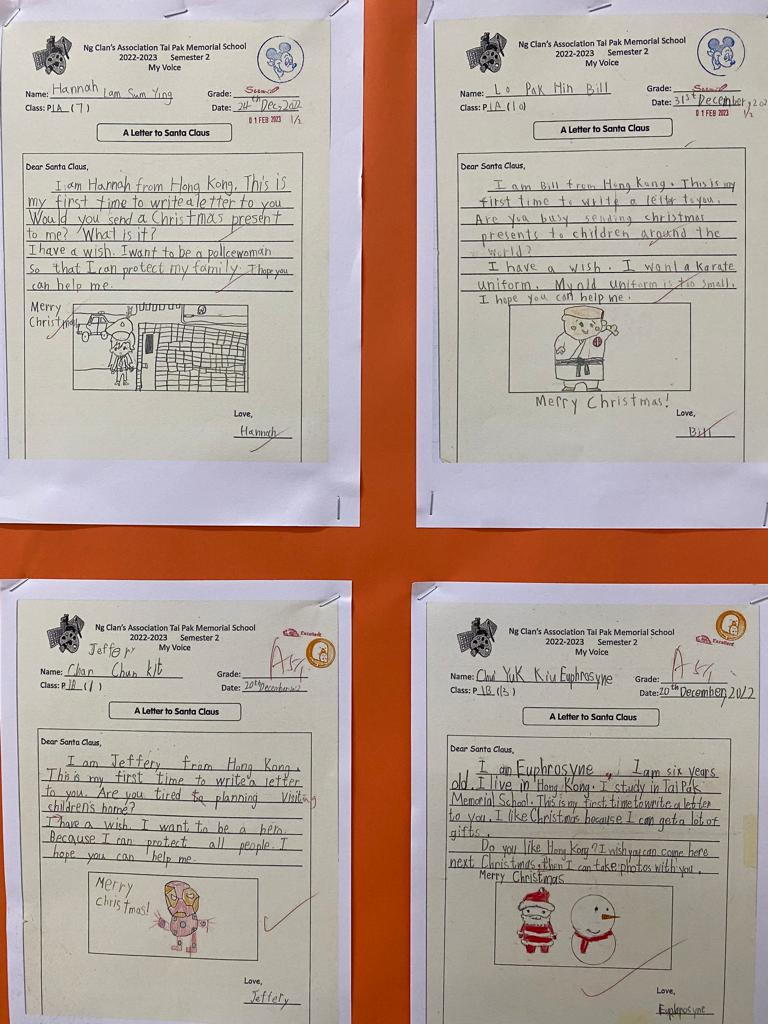 Ng Clan's Association Tai Pak Memorial School
2022-2023 Semester 2
My Voice
Name: Hannah Lam Sum Ying
Grade:
Class: P1A (7)
Date: 24th Dec, 2022
01 FEB 2023 1/2
A Letter to Santa Claus
Dear Santa Claus,
I am Hannah from Hong Kong. This is
my first time to write a letter to you
Would you send a Christmas present
to me? What is it?
I have a wish. I want to be a policewoman
so that I can protect my family. I hope you
can help me.
Merry
Christmas
Love,
Hannah
Ng Clan's Association Tai Pak Memorial School
2022-2023 Semester 2
My Voice
Name: Lo Pak Hin Bill
Grade:
Class: P1A (10)
Date: 31st December, 20
01 FEB 2023 1/2
A Letter to Santa Claus
Dear Santa Claus,
I am Bill from Hong Kong. This is my
first time to write a letter to you.
Are you busy sending christmas
presents to children around the
world?
I have a wish. I want a karate
uniform. My old uniform is too small.
I hope you can help me.
Merry Christmas!
Love,
Bill
Ng Clan's Association Tai Pak Memorial School
2022-2023 Semester 2
My Voice
Excellent
Jeffery
Name: Chan Chun Kit
Grade:
Class: P 1B (1)
Date: 20th December
A Letter to Santa Claus
Dear Santa Claus,
I am Jeffery from Hong Kong.
This is my first time to write a letter
to you. Are you tired planning visiting
children's home?
I have a wish. I want to be a hero.
Because I can protect all people. I
hope you can help me.
Merry
Christmas!
Love,
Jeffery
Ng Clan's Association Tai Pak Memorial School
2022-2023 Semester 2
My Voice
Excellent
Name: Chui Yuk Kiu Euphrosyne
Grade:
Class: P 1B (13)
Date: 20th December, 2022
A Letter to Santa Claus
Dear Santa Claus,
I am Euphrosyne. I am six years
old. I live in Hong Kong. I study in Tai Pak
Memorial School. This is my first time to write a letter
to you. I like Christmas because I can get a lot of
gifts.
Do you like Hong Kong? I wish you can come here
next Christmas, then I can take photos with you.
Merry Christmas
Love,
Euphrosyne